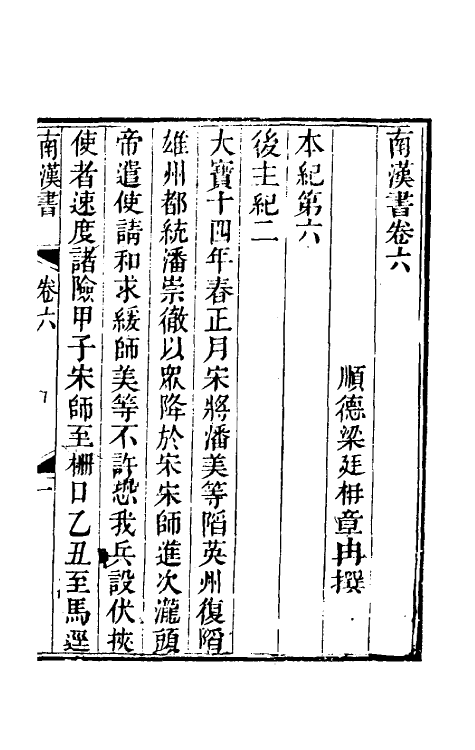 南漢書卷六
順德梁廷枏章冉撰
本紀第六
後主紀二
大寶十四年春正月宋將潘美等陷英州復陷
雄州都統潘崇徹以眾降於宋宋師進次瀧頭
帝遣使請和求緩師美等不許懟我兵設伏挾
使者速度諸險甲子宋師至柵口乙丑至馬逕
南漢書 卷六 一